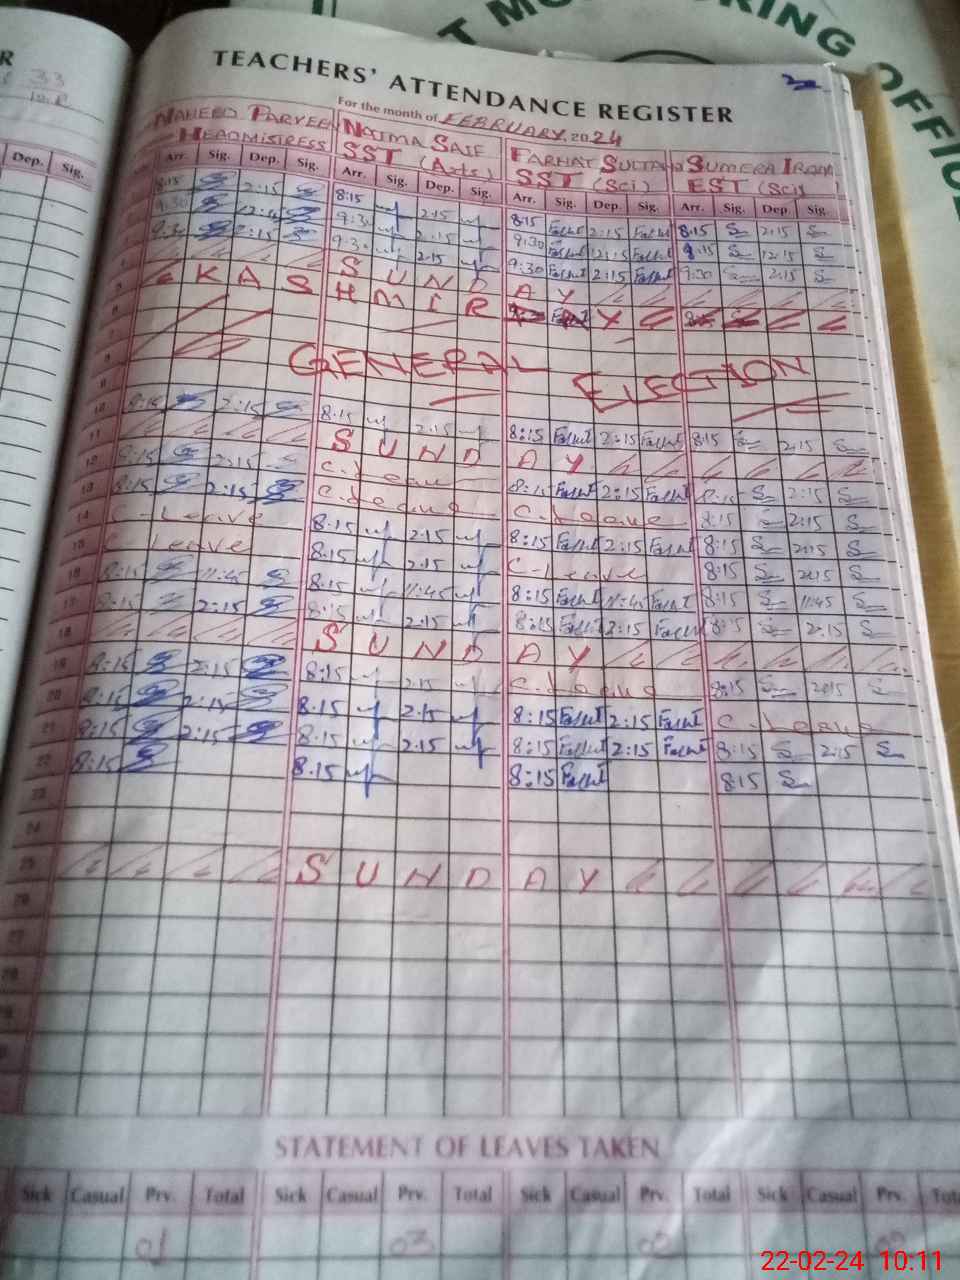 T MONITORING OFFICE
R
33
TEACHERS' ATTENDANCE REGISTER
For the month of FEBRUARY 2024
NAHEED PARVEEN NAJMA SAIF FARHAT SULTANA SUMERA IRAM
HEADMISTRESS SST (Arts) SST (Sci) EST (Sci)
Dep. Sig. Arr. Sig. Dep. Sig. Arr. Sig. Dep. Sig. Arr. Sig. Dep. Sig. Arr. Sig. Dep. Sig.
8:15 2:15 8:15 2.15 8:15 Farhat 2:15 Farhat 8:15 2:15
9:30 12:15 9:30 2.15 9:30 Farhat 12:15 Farhat 9:15 12:15
9:30 2:15 9:30 2.15 9:30 Farhat 2:15 Farhat 9:30 2:15
SUNDAY
KASHMIR DAY
GENERAL ELECTION
10 8:15 2:15 8.15 2.15 8:15 Farhat 2:15 Farhat 8:15 2:15
11 SUNDAY
12 8:15 2:15 C. Leave 8:15 Farhat 2:15 Farhat 8:15 2:15
13 8:15 2:15 C. Leave C. Leave 8:15 2:15
14 C. Leave 8:15 2.15 8:15 Farhat 2:15 Farhat 8:15 2:15
15 C. Leave 8:15 2.15 C. Leave 8:15 2:15
16 8:15 11:45 8:15 11:45 8:15 Farhat 11:45 Farhat 8:15 11:45
17 8:15 2:15 8:15 2.15 8:15 Farhat 2:15 Farhat 8:15 2:15
18 SUNDAY
19 8:15 2:15 8:15 2.15 C. Leave 8:15 2:15
20 8:15 2:15 8.15 2.15 8:15 Farhat 2:15 Farhat C. Leave
21 8:15 2:15 8.15 2.15 8:15 Farhat 2:15 Farhat 8:15 2:15
22 8:15 8.15 8:15 Farhat 8:15
23
24
25 SUNDAY
26
27
28
STATEMENT OF LEAVES TAKEN
Sick Casual Prv. Total Sick Casual Prv. Total Sick Casual Prv. Total Sick Casual Prv. Total
01 03 02
22-02-24 10:11